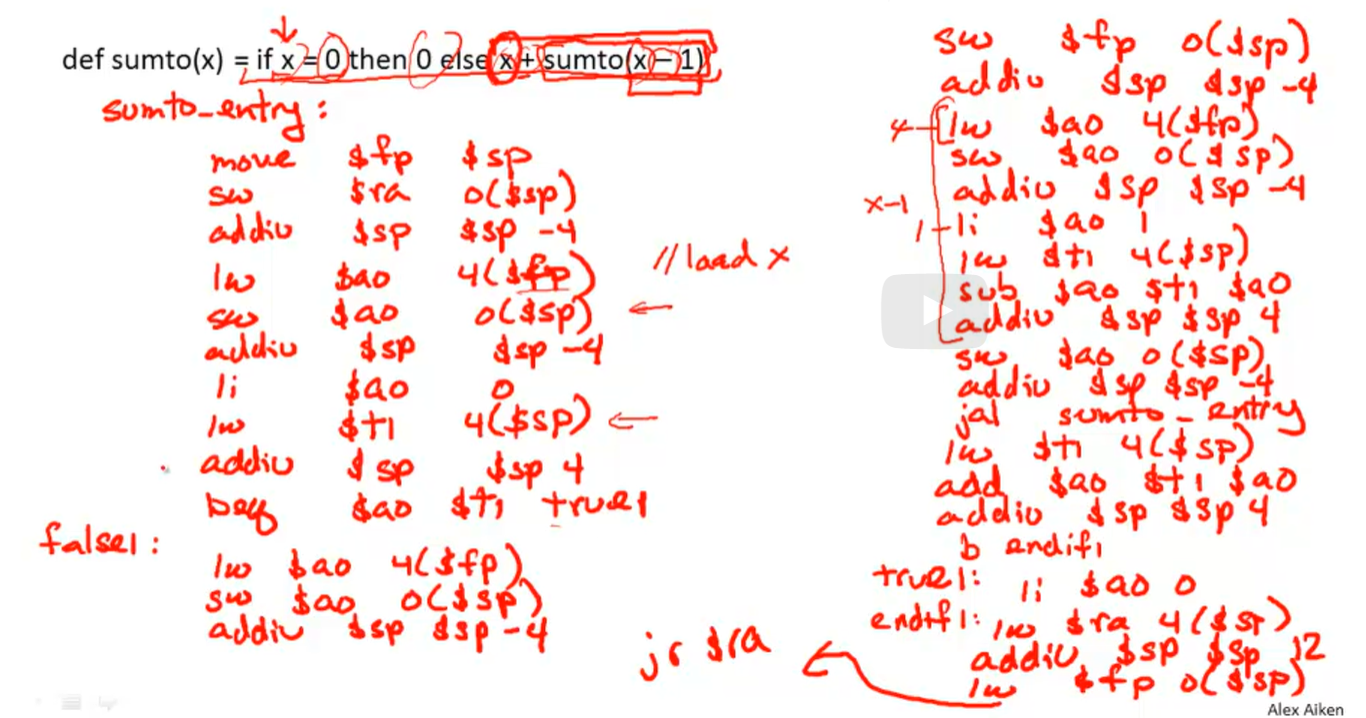 def sumto(x) = if x = 0 then 0 else x + sumto(x – 1)
sumto_entry:
move $fp $sp
sw $ra 0($sp)
addiu $sp $sp -4
lw $a0 4($fp) //load x
sw $a0 0($sp)
addiu $sp $sp -4
li $a0 0
lw $t1 4($sp)
addiu $sp $sp 4
beq $a0 $t1 true1
false1:
lw $a0 4($fp)
sw $a0 0($sp)
addiu $sp $sp -4
sw $fp 0($sp)
addiu $sp $sp -4
lw $a0 4($fp)
sw $a0 0($sp)
addiu $sp $sp -4
x-1
1 li $a0 1
lw $t1 4($sp)
sub $a0 $t1 $a0
addiu $sp $sp 4
sw $a0 0($sp)
addiu $sp $sp -4
jal sumto_entry
lw $t1 4($sp)
add $a0 $t1 $a0
addiu $sp $sp 4
b endif1
true1: li $a0 0
endif1: lw $ra 4($sp)
addiu $sp $sp 12
lw $fp 0($sp)
jr $ra
Alex Aiken